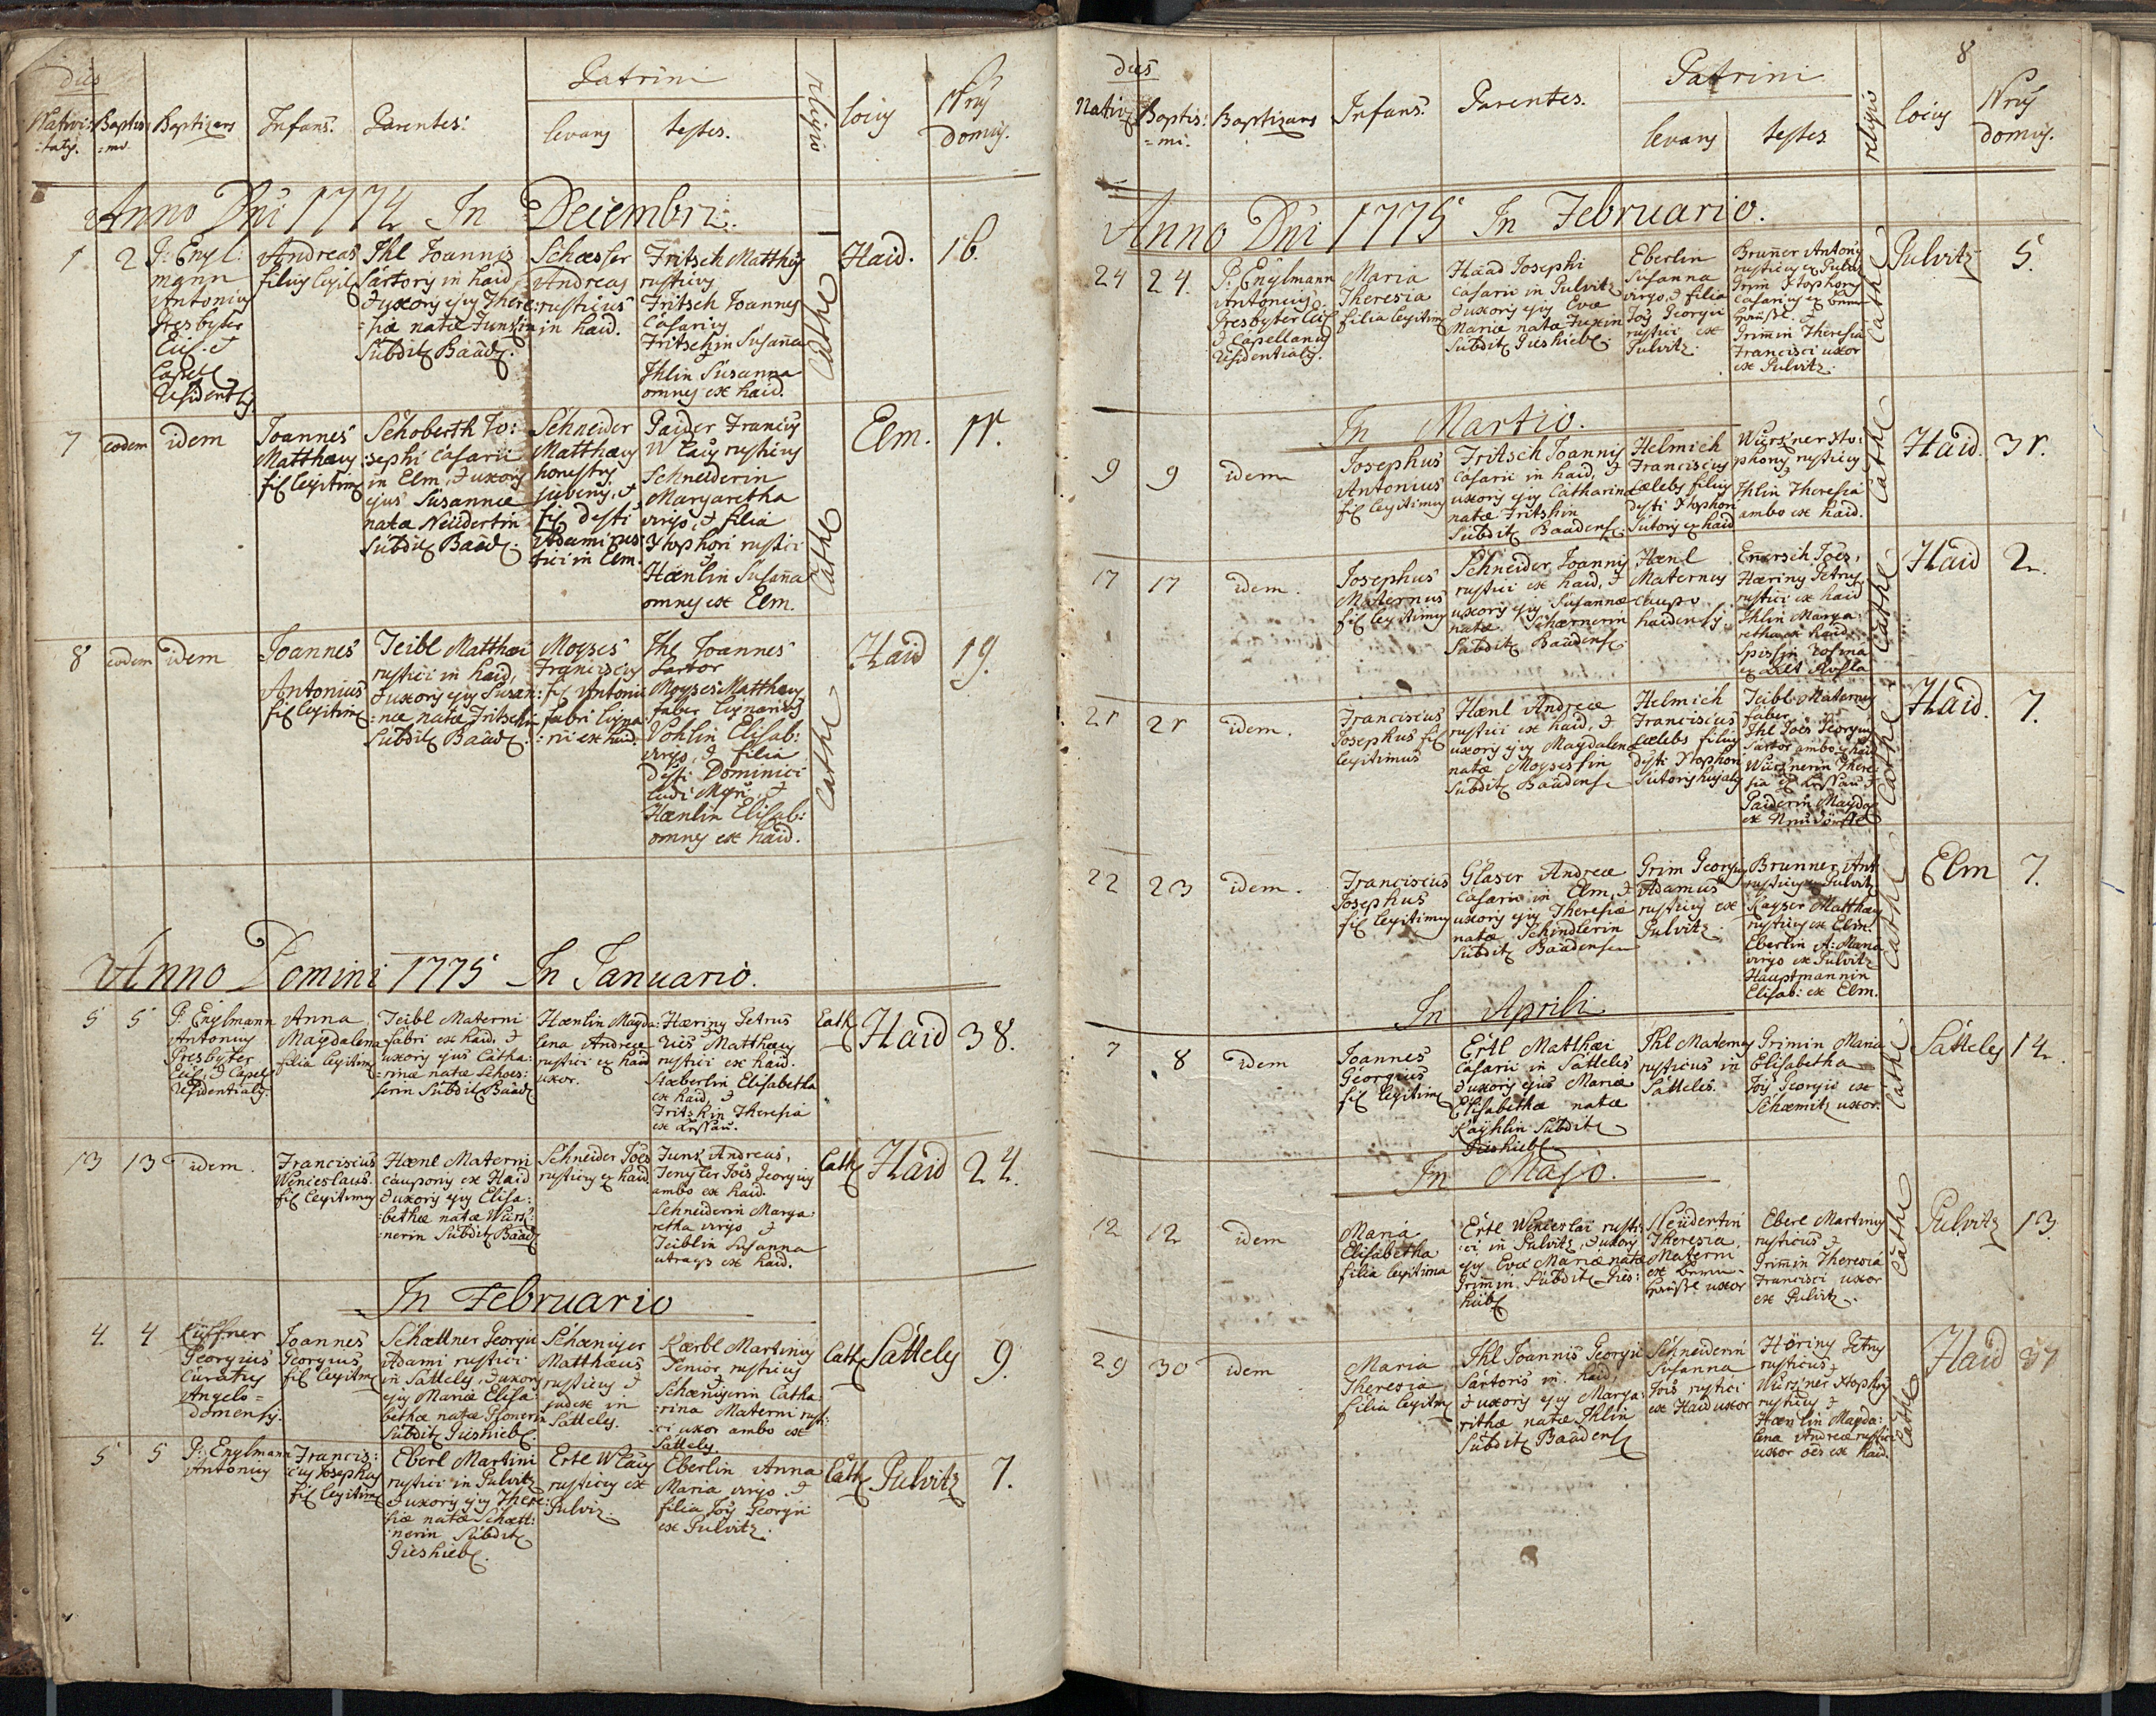 dies
Patrini
Nativi: Baptis: Baptizans Infans. Parentes: levans testes. religio locus Nrus
:tatis. =mi. domus.
Anno Dni 1774 In Decembri.
1 2
P: Engl:
mann
Antonius
Presbyter
Andreas
filius legit
Ihl Joannis
Sartoris in haid
& uxoris ejus There:
:siæ natæ Funkin
Subdit Baad.
Schæsser
Andreas
rusticus
in haid.
Fritsch Matthæ
rusticus
Fritsch Joannes
Casarius
Fritschin Susanna
&
Ihlin Susanna
omnes ex haid.
Cathc
Haid. 16.
7 eodem idem
Joannes
Matthæus
fil legitim
Schoberth Jo:
:sephi Casarii
in Elm, & uxoris
ejus Susannæ
natæ Neudertin
Subdit Baad.
Schneider
Matthæus
honestus
juvenis, &
fil defti
Adami rus:
tici in Elm.
Paider Francis
rusticus
Schneiderin
Margaretha
virgo, & filia
Xtophori rustici
&
Hænlin Susanna
omnes ex Elm.
Cathc
Elm. 11.
8 eodem idem
Joannes
Antonius
fil legitim
Teibl Matthæi
rustici in haid,
& uxoris ejus Susan:
:næ natæ Fritschin
Subdit Baad.
Moyses
Franciscus
fil Antonii
fabri ligna:
:rii ex haid.
Ihl Joannes
Sartor
Moyses Matthæus
faber lignarius
Pohlin Elisab:
virgo, & filia
defti Dominici
ludi Mgri, &
Hænlin Elisab:
omnes ex haid.
Cathc
Haid 19.
Anno Domini 1775 In Januario.
5 5
P: Englmann
Antonius
Presbyter
Residentialis.
Anna
Magdalena
filia legitim
Teibl Materni
fabri ex haid, &
uxoris ejus Catha:
:rinæ natæ Schoes:
serin Subdit Baad
Hænlin Magda:
lena Andreæ
rustici ex haid
uxor.
Hæring Petrus
Matthæus
rustici ex haid.
Elisabetha
ex haid, &
Fritshin Theresia
Cath
Haid 38.
13 13 idem.
Franciscus
Wenceslaus.
fil legitimus
Hænl Materni
cauponis ex Haid
& uxoris ejus Elisa:
:bethæ natæ Würs:
:nerin Subdit Baad
Schneider Joës
rusticus ex haid
Funk Andreas,
Tengler Jois Georgius
ambo ex haid.
Schneiderin Marga:
retha virgo &
Teiblin Susanna
utraqs ex haid.
Cath
Haid 24.
In Februario
4. 4
Küffner
Georgius
Curatus
Angelo=
domensis.
Joannes
Georgius
fil legitim
Schættner Georgii
Adami rustici
in Sattels, & uxoris
ejus Mariæ Elisa:
bethæ natæ Plonerin
Subdit Gieshiebl.
Schæniger
Matthæus
rusticus &
judex in
Sattels.
Kærbl Martinus
Senior, rusticus
&
Schænigerin Catha:
:rina Materni rust:
:ci uxor ambo ex
Sattels.
Cath
Sattels 9.
5 5
P: Englmann
Antonius
Francis:
cus Josephus
fil legitim
Eberl Martini
rustici in Pulvitz
& uxoris ejus There:
siæ natæ Schætt:
:nerin Subdit
Gieshiebl.
Ertl
rusticus ex
Pulviz.
Eberlin Anna
Maria virgo &
filia Jois Georgii
ex Pulvitz.
Cath
Pulvitz 7.
8
dies
Patrini
Nativ Baptis: Baptizans Infans. Parentes. levans testes religio locus Nrus
=mi. domus.
Anno Dni 1775 In Februario.
24 24.
P: Englmann
Antonius
Presbyter
& Capellanus
Residentialis.
Maria
Theresia
filia legitim
Haad Josephi
Casarii in Pulvitz
& uxoris ejus Evæ
Mariæ natæ Fuxin
Subdit Gieshiebl.
Eberlin
Susanna
virgo, & filia
Jois Georgii
rustici ex
Pulvitz.
Brunner Antonius
rusticus ex Pulv
Grim Xtophorus
Casarius
Grimin Theresia
Francisci uxor
ex Pulvitz.
Cathc
Pulvitz 5.
In Martio.
9 9 idem
Josephus
Antonius
fil legitimus
Fritsch Joannis
Casarii in haid, &
uxoris ejus Catharinæ
natæ Fritshin
Subdit Baadens.
Helmich
Franciscus
cælebs filius
defti Xtophori
Sutoris ex haid
Würs'ner Xto:
phorus rusticus
Ihlin Theresia
ambo ex haid.
Cathc
Haid. 31.
17 17 idem.
Josephus
Maternus
fil legitimus
Schneider Joannis
rustici ex haid, &
uxoris ejus Susannæ
natæ Schærnerin
Subdit Baadens.
Hænl
Maternus
caupo
haidensis.
Joës,
Hæring Petrus
rustici ex haid
Ihlin Marga:
retha ex haid
Rosina
Cathc
Haid 2.
21 21 idem.
Franciscus
Josephus fil
legitimus
Hænl Andreæ
rustici ex haid, &
uxoris ejus Magdalenæ
natæ Moysessin
Subdit Baadens
Helmich
Franciscus
cælebs filius
defti Xtophori
Sutoris hujatis
Teibl Maternus
faber
Ihl Joës Georgius
Sartor ambo ex haid
Würs'nerin There:
sia
Paiderin Magda
Cathc
Haid. 7.
22 23 idem.
Franciscus
Josephus
fil legitimus
Glaser Andreæ
Casarii in Elm, &
uxoris ejus Theresiæ
natæ Schindlerin
Subdit Baadens
Grim Georgius
Adamus
rusticus ex
Pulvitz.
Brunner Ant
rusticus ex Pulvitz
Kayser Matthæus
rusticus ex Elm.
Eberlin A: Maria
virgo ex Pulvitz
Hauptmannin
Elisab: ex Elm.
Cathc
Elm 7.
In Aprili
7 8 idem
Joannes
Georgius
fil legitim
Ertl Matthæi
Casarii in Sattels
& uxoris ejus Mariæ
Elisabethæ natæ
Kayhlin Subdit
Gieshiebl.
Ihl Maternus
rusticus in
Sattels.
Grimin Maria
Elisabetha
Jois Georgii ex
Schæmitz uxor.
Cathc
Sattels 14.
In Majo.
12 12 idem
Maria
Elisabetha
filia legitima
Ertl Wenceslai rusti:
ci in Pulvitz, & uxoris
ejus Evæ Mariæ natæ
Grimin. Subdit Gies:
hübl
Neudertin
Theresia
Materni
uxor
Eberl Martinus
rusticus &
Grimin Theresia
Francisci uxor
ex Pulvitz.
Cathc
Pulvitz 13.
29 30 idem
Maria
Theresia
filia legitim
Ihl Joannis Georgii
Sartoris in haid,
& uxoris ejus Marga:
rithæ natæ Ihlin
Subdit Baadens
Schneiderin
Susanna
Jois rustici
ex Haid uxor
Höring Petrus
rusticus
Würs'ner Xtophorus
rusticus &
Hænlin Magda:
lena Andreæ rustici
uxor oës ex haid.
Cathc
Haid 37